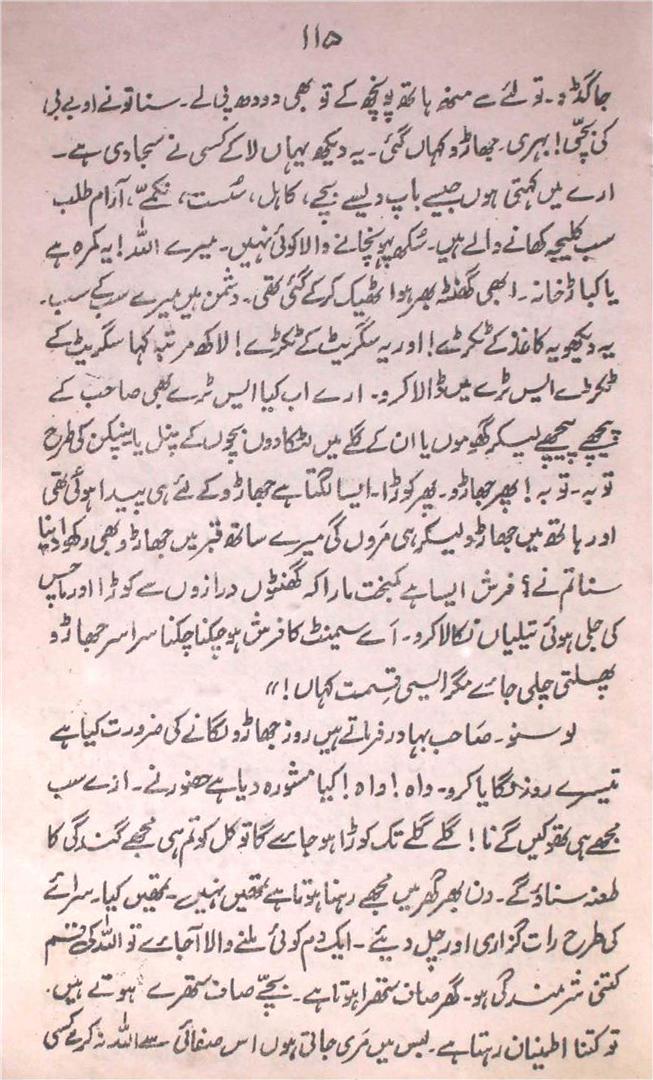 ۱۱۵
جا گڈو۔ تولئے سے منھ ہاتھ پونچھ کے تو بھی دودھ پی لے۔ سنا تو نے او بے بی،
کی بچّی! بہری۔ جھاڑو کہاں گئی۔ یہ دیکھ یہاں لا کے کسی نے سجا دی ہے۔
ارے میں کہتی ہوں جیسے باپ ویسے بچے، کاہل، سُست، نکمّے، آرام طلب
سب کلیجہ کھانے والے ہیں۔ سُکھ پہونچانے والا کوئی نہیں۔ میرے اللہ! یہ کمرہ ہے
یا کباڑخانہ۔ ابھی گھنٹہ بھر ہوا ٹھیک کر کے گئی تھی۔ دشمن ہیں میرے سب کے سب۔
یہ دیکھو یہ کاغذ کے ٹکڑے! اور یہ سگریٹ کے ٹکڑے! لاکھ مرتبہ کہا سگریٹ کے
ٹکڑے ایس ٹرے میں ڈالا کرو۔ ارے اب کیا ایس ٹرے بھی صاحب کے
پیچھے پیچھے لیکر گھوموں یا ان کے گلے میں لٹکا دوں بچوں کے پنل یا نیپکن کی طرح
توبہ۔ توبہ! پھر جھاڑو۔ پھر کوڑا۔ ایسا لگتا ہے جھاڑو کے لئے ہی پیدا ہوئی تھی
اور ہاتھ میں جھاڑو لیکر ہی مَروں گی میرے ساتھ قبر میں جھاڑو بھی رکھوا دینا
سنا تم نے؟ فرش ایسا ہے کمبخت مارا کہ گھنٹوں درازوں سے کوڑا اور ماچس
کی جلی ہوئی تیلیاں نکالا کرو۔ اَے سیمنٹ کا فرش ہو چکنا چکنا سراسر جھاڑو
پھسلتی چلی جائے مگر ایسی قِسمت کہاں!"
لو سنو۔ صَاحب بہادر فرماتے ہیں روز جھاڑو لگانے کی ضرورت کیا ہے
تیسرے روز لگایا کرو۔ واہ! واہ! کیا مشورہ دیا ہے حضور نے۔ ارے سب
مجھے ہی تھوکیں گے نا! گلے گلے تک کوڑا ہو جائے گا تو کل کو تم ہی مجھے گندگی کا
طعنہ سناؤ گے۔ دن بھر گھر میں مجھے رہنا ہوتا ہے تمھیں نہیں۔ تمھیں کیا۔ سرائے
کی طرح رات گزاری اور چل دیئے۔ ایک دم کوئی ملنے والا آجائے تو اللہ کی قسم
کتنی شرمندگی ہو۔ گھر صاف ستھرا ہوتا ہے۔ بچّے صاف ستھرے ہوتے ہیں۔
تو کتنا اطمینان رہتا ہے۔ بس میں مَری جاتی ہوں اس صفائی سے اللہ نہ کرے کسی